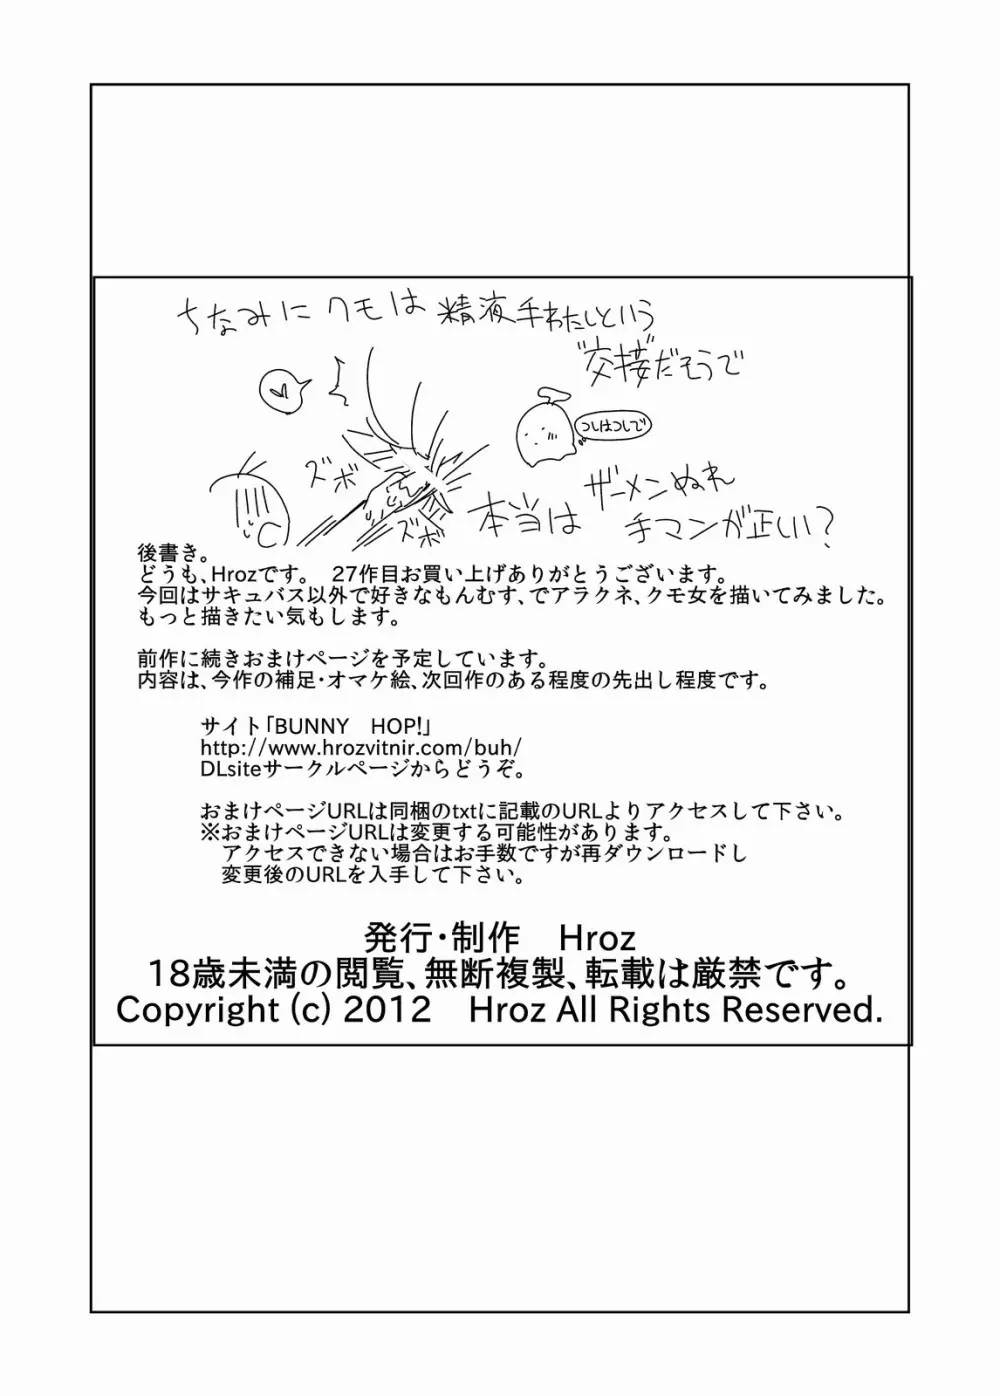 ちなみにクモは精液手わたしという
"交接"だそうで
つしはつしで
ズボ
ズボ
本当は ザーメンぬれ
手マンが正しい?
後書き。
どうも、Hrozです。 27作目お買い上げありがとうございます。
今回はサキュバス以外で好きなもんむす、でアラクネ、クモ女を描いてみました。
もっと描きたい気もします。
前作に続きおまけページを予定しています。
内容は、今作の補足・オマケ絵、次回作のある程度の先出し程度です。
サイト「BUNNY HOP!」
http://www.hrozvitnir.com/buh/
DLsiteサークルページからどうぞ。
おまけページURLは同梱のtxtに記載のURLよりアクセスして下さい。
※おまけページURLは変更する可能性があります。
アクセスできない場合はお手数ですが再ダウンロードし
変更後のURLを入手して下さい。
発行・制作 Hroz
18歳未満の閲覧、無断複製、転載は厳禁です。
Copyright (c) 2012 Hroz All Rights Reserved.